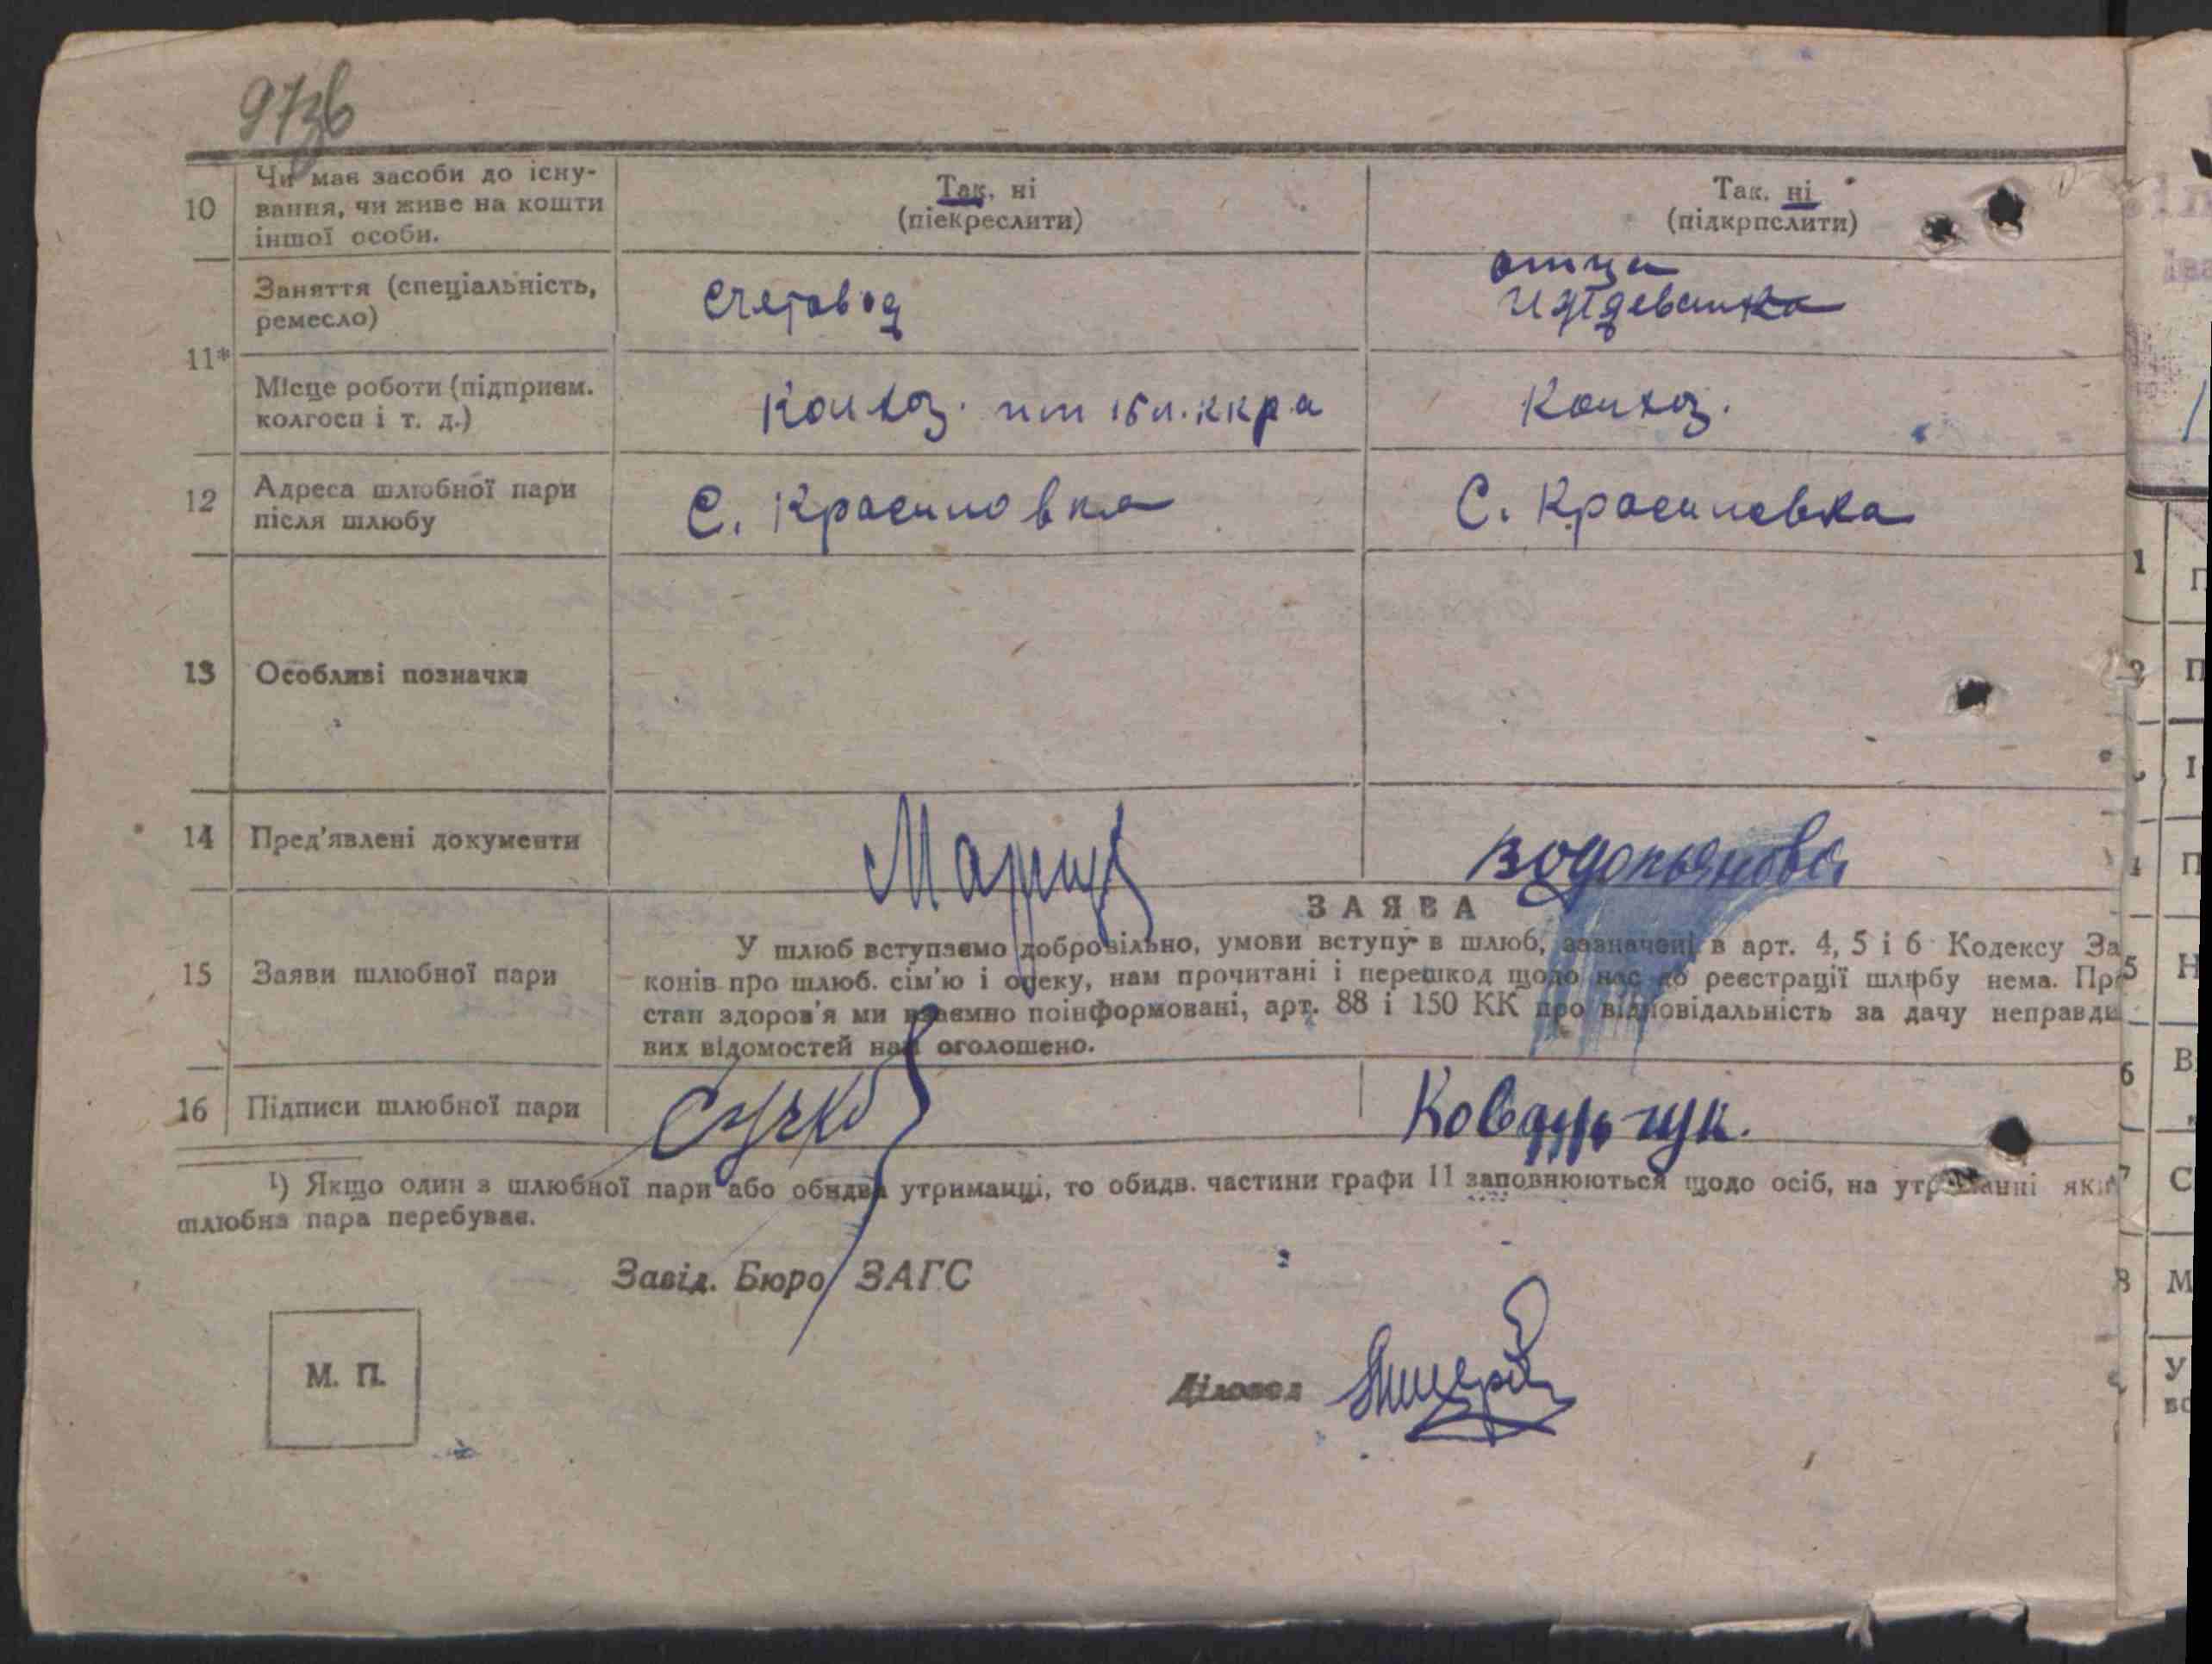 97зв
10 Чи має засоби до існу-
вання, чи живе на кошти
іншої особи.
Так, ні
(піекреслити)
Так, ні
(підкрпслити)
11*
Заняття (спеціальність,
ремесло)
Счетовод
отца
иждевенка
Місце роботи (підприєм.
колгосп і т. д.)
Колхоз.
Колхоз.
12 Адреса шлюбної пари
після шлюбу
С. Красиловка
С. Красиловка
13 Особливі позначки
14 Пред'явлені документи
водопьянова
15 Заяви шлюбної пари
ЗАЯВА
У шлюб вступаємо добровільно, умови вступу в шлюб, зазначені в арт. 4, 5 і 6 Кодексу За
конів про шлюб. сім'ю і опеку, нам прочитані і перешкод щодо нас до реєстрації шлюбу нема. Пр
стан здоров'я ми взаємно поінформовані, арт. 88 і 150 КК про відповідальність за дачу неправди
вих відомостей нам оголошено.
16 Підписи шлюбної пари
Ковальчук.
¹) Якщо один з шлюбної пари або обидва утриманці, то обидв. частини графи 11 заповнюються щодо осіб, на утриманні яки
шлюбна пара перебуває.
Завід. Бюро ЗАГС
М. П.
Діловод